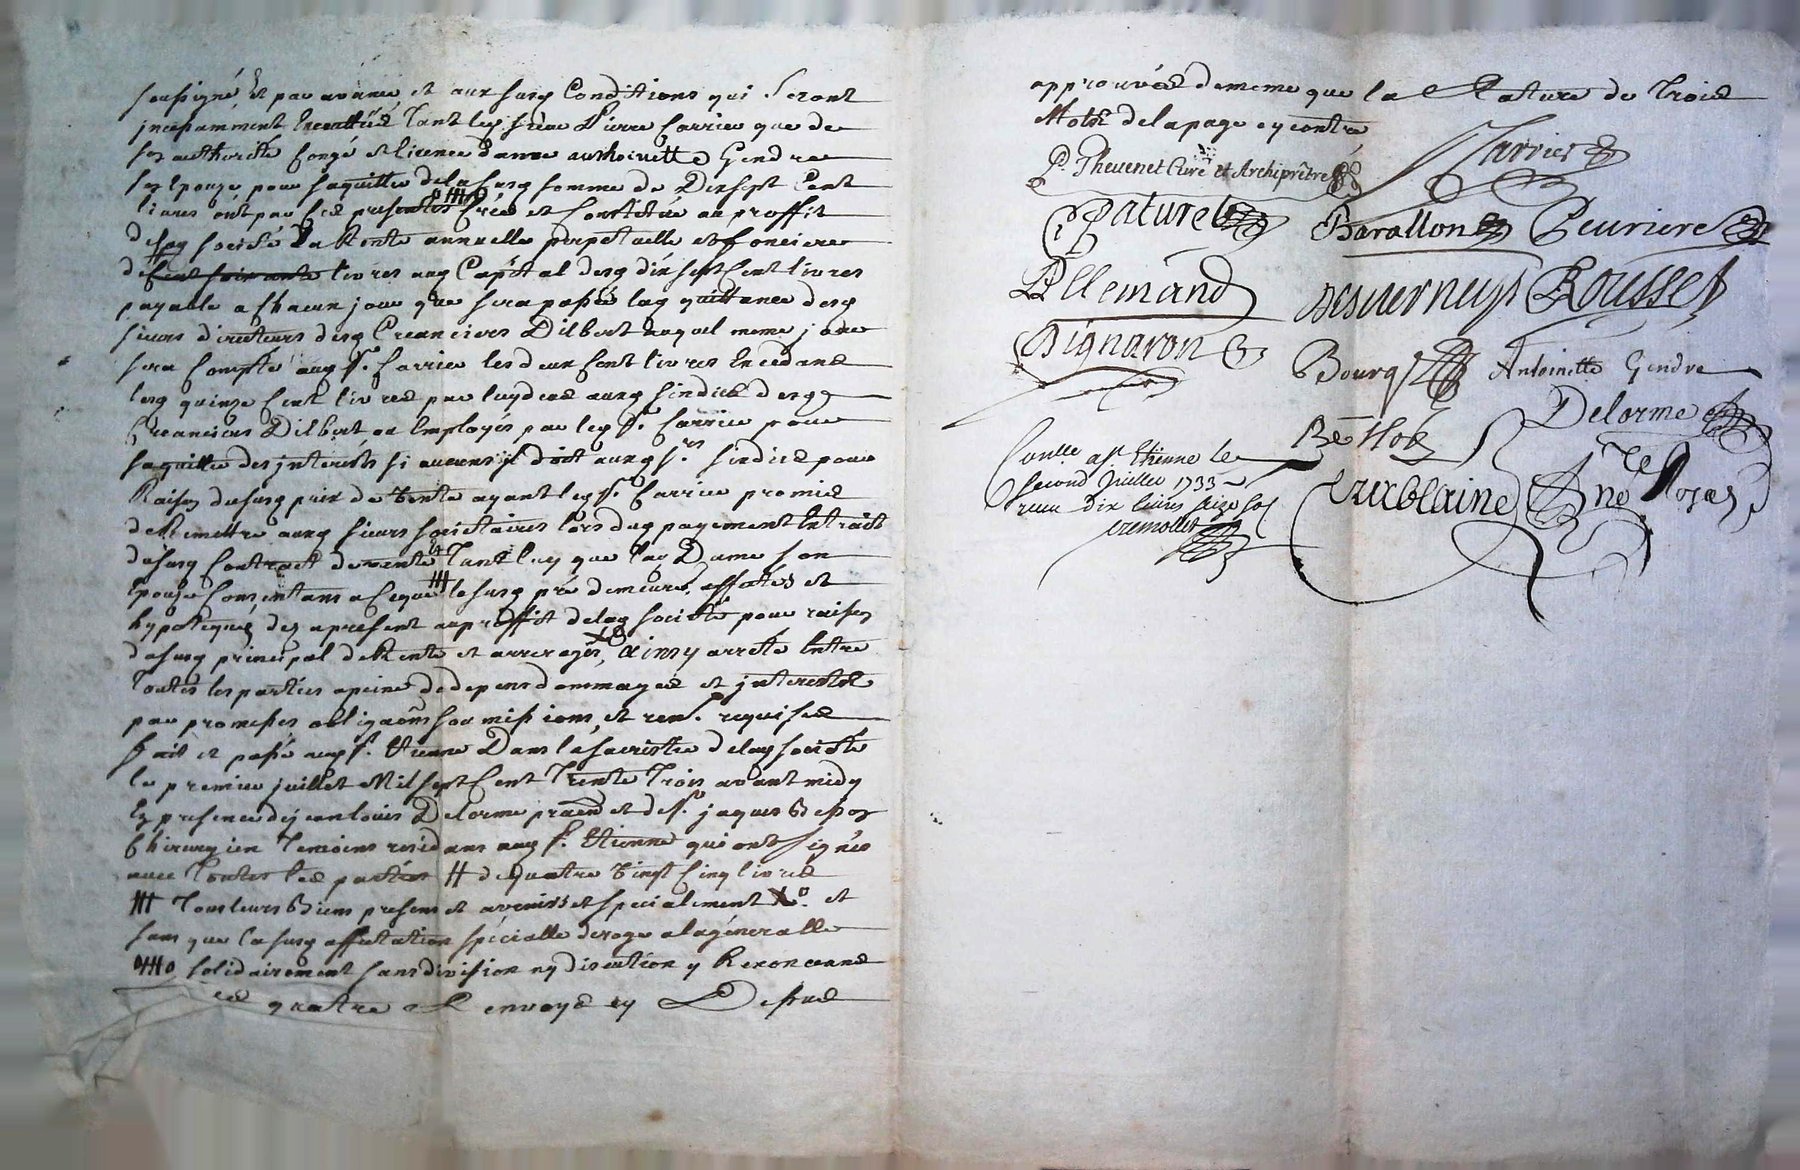 soussigné et par avance et aux susq Conditions qui Seront
incessamment Executtés Tant led sieur Pierre Carrier que de
son authorité Congé et licence dame anthoinette Gendre
son Epouze pour saquitter delasusq somme de Dixsept Cent
livres ont par ces presentes Créé et Constitué au proffit
delaq société La Rente annuelle perpetuelle et fonciere
de Cent soixante livres auq Capital desq dix sept Cent livres
payable a chacun jour que sera passée laq quittance desq
sieurs directeurs desq Creanciers Dilbert auquel meme jour
sera Compté auq sr. Carrier les deux Cent livres Excedans
lesq quinze Cent livres par luy dues auxq sindics desq
Creanciers Dilbert ou Employés par leq sr. Carrier pour
saquitter des interests si aucuns il doit auxq srs. sindics pour
Raison dusuq prix de Vente ayant leq sr. Carrier promis
de Remettre auxq sieurs societaires lors duq payement Extrait
dusuq Contract de vente Tant luy que laq Dame son
Epouze Consentans a Ceque # lesusq pré demeure affectés et
hypotequés des apresent auproffit delaq société pour raison
dusuq principal de Rente et arrerages, ainsy arrêté Entre
Toutes les parties apeine de depens dommages et interests
par promesses obligaons soumissions, et ren. requises
fait et passé auq st. Etienne Dans la sacristie delaq société
le premier juillet Mil sept Cent Trente Trois avant midy
En presence de jean louis Delorme praen et de sr. jaques Bessoz
Chirurgien Temoins residans auq st. Etienne qui ont signés
avec Toutes les parties # de quatre vingt Cinq livres
# Tous leurs Biens presens et avenirs et specialement Xo. et
sans que lasusq affectation spécialle deroge alagéneralle
o#o solidairement sans division ny discution y Renoncans
ces quatre Renvoys cy Dessus
approuvés de meme que la Rature de Trois
Mots delapage cy contre
P. Thevenet Curé et Archiprêtre
Carrier
Paturel
Barallon
Peuriere
Allemand
Desverneys
Rousset
Pignaron
Bourg
Antoinette Gendre
Delorme
Bessoz
Conlle a st Etienne le
second Juillet 1733
receu dix livres seize sol
cremollet
Trablaine